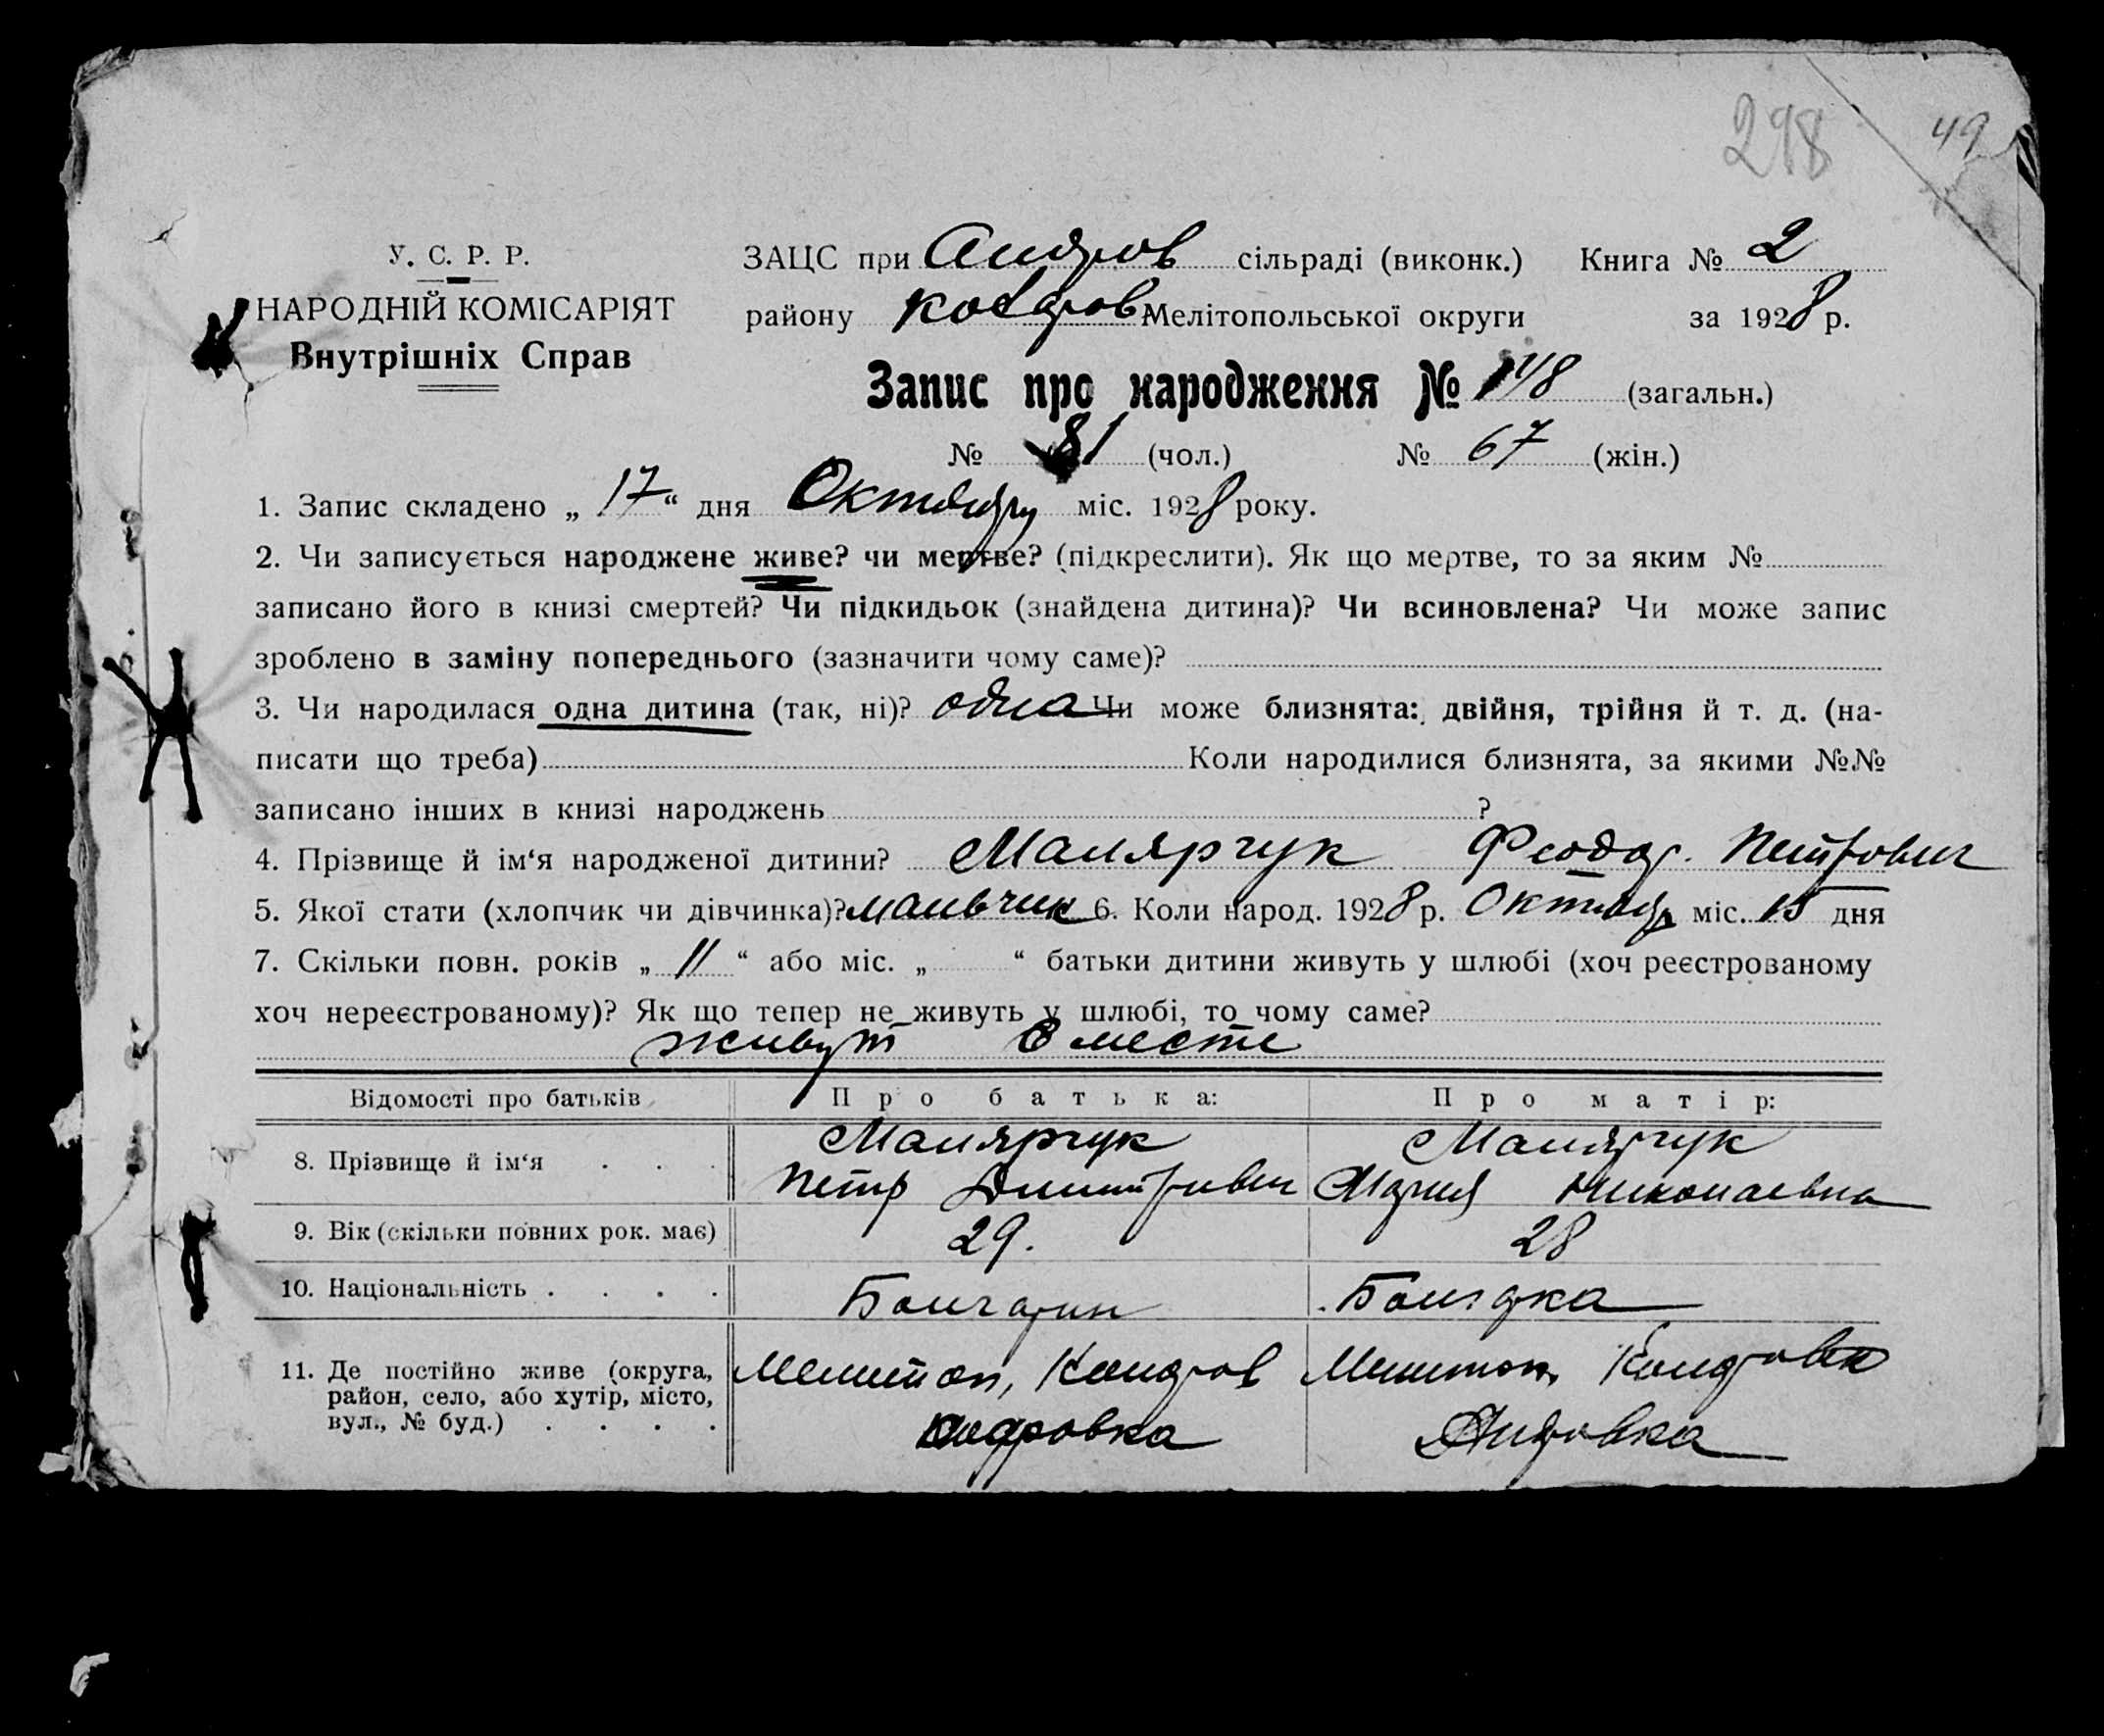 298
49
У. С. Р. Р.
НАРОДНІЙ КОМІСАРІЯТ
Внутрішніх Справ
ЗАЦС при Андров сільраді (виконк.) Книга № 2
району Мелітопольської округи за 1928 р.
Запис про народження № 148 (загальн.)
№ 81 (чол.) № 67 (жін.)
1. Запис складено „ 17 “ дня Октября міс. 1928 року.
2. Чи записується народжене живе? чи мертве? (підкреслити). Як що мертве, то за яким №
записано його в книзі смертей? Чи підкидьок (знайдена дитина)? Чи всиновлена? Чи може запис
зроблено в заміну попереднього (зазначити чому саме)?
3. Чи народилася одна дитина (так, ні)? одна Чи може близнята: двійня, трійня й т. д. (на-
писати що треба) Коли народилися близнята, за якими №№
записано інших в книзі народжень ?
4. Прізвище й ім‘я народженої дитини? Малярчук Феодор. Петрович
5. Якої стати (хлопчик чи дівчинка)? мальчик 6. Коли народ. 1928 р. Октябр міс. 15 дня
7. Скільки повн. років „ 11 “ або міс. „ “ батьки дитини живуть у шлюбі (хоч реєстрованому
хоч нереєстрованому)? Як що тепер не живуть у шлюбі, то чому саме?
живут вместе
Відомості про батьків Про батька: Про матір:
8. Прізвище й ім‘я . . . Малярчук Малярчук
Петр Дмитрович Мария Николаевна
9. Вік (скільки повних рок. має) 29. 28
10. Національність . . . . Болгарин Болгарка
11. Де постійно живе (округа,
район, село, або хутір, місто,
вул., № буд.) . . . .
Мелитоп, Колдров Мелитоп,
Андровка Андровка